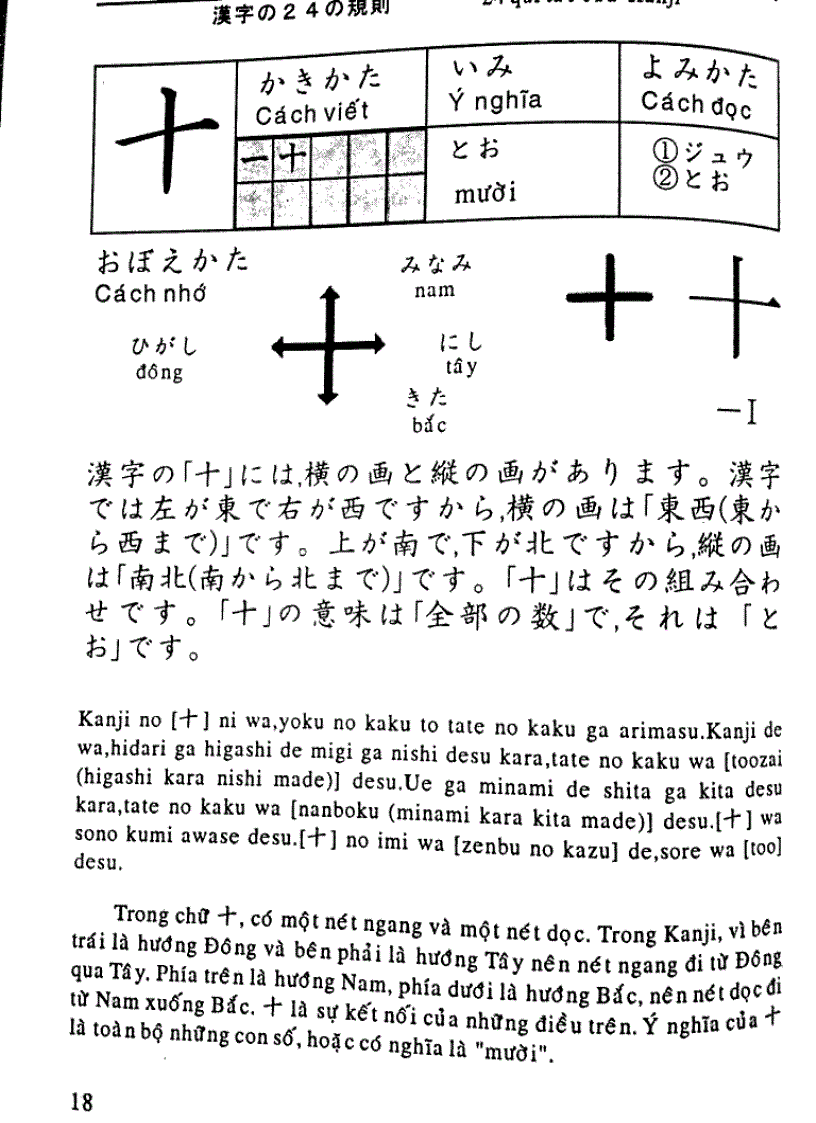 漢字の24の規則
十 かきかた いみ よみかた
Cách viết Ý nghĩa Cách đọc
一十 とお ①ジュウ
mười ②とお
おぼえかた みなみ
Cách nhớ nam
ひがし にし
đông tây
きた
bắc
一I
漢字の「十」には,横の画と縦の画があります。漢字
では左が東で右が西ですから,横の画は「東西(東か
ら西まで)」です。上が南で,下が北ですから,縦の画
は「南北(南から北まで)」です。「十」はその組み合わ
せです。「十」の意味は「全部の数」で,それは「と
お」です。
Kanji no [十] ni wa,yoku no kaku to tate no kaku ga arimasu.Kanji de
wa,hidari ga higashi de migi ga nishi desu kara,tate no kaku wa [toozai
(higashi kara nishi made)] desu.Ue ga minami de shita ga kita desu
kara,tate no kaku wa [nanboku (minami kara kita made)] desu.[十] wa
sono kumi awase desu.[十] no imi wa [zenbu no kazu] de,sore wa [too]
desu.
Trong chữ 十, có một nét ngang và một nét dọc. Trong Kanji, vì bên
trái là hướng Đông và bên phải là hướng Tây nên nét ngang đi từ Đông
qua Tây. Phía trên là hướng Nam, phía dưới là hướng Bắc, nên nét dọc đi
từ Nam xuống Bắc. 十 là sự kết nối của những điều trên. Ý nghĩa của 十
là toàn bộ những con số, hoặc có nghĩa là "mười".
18